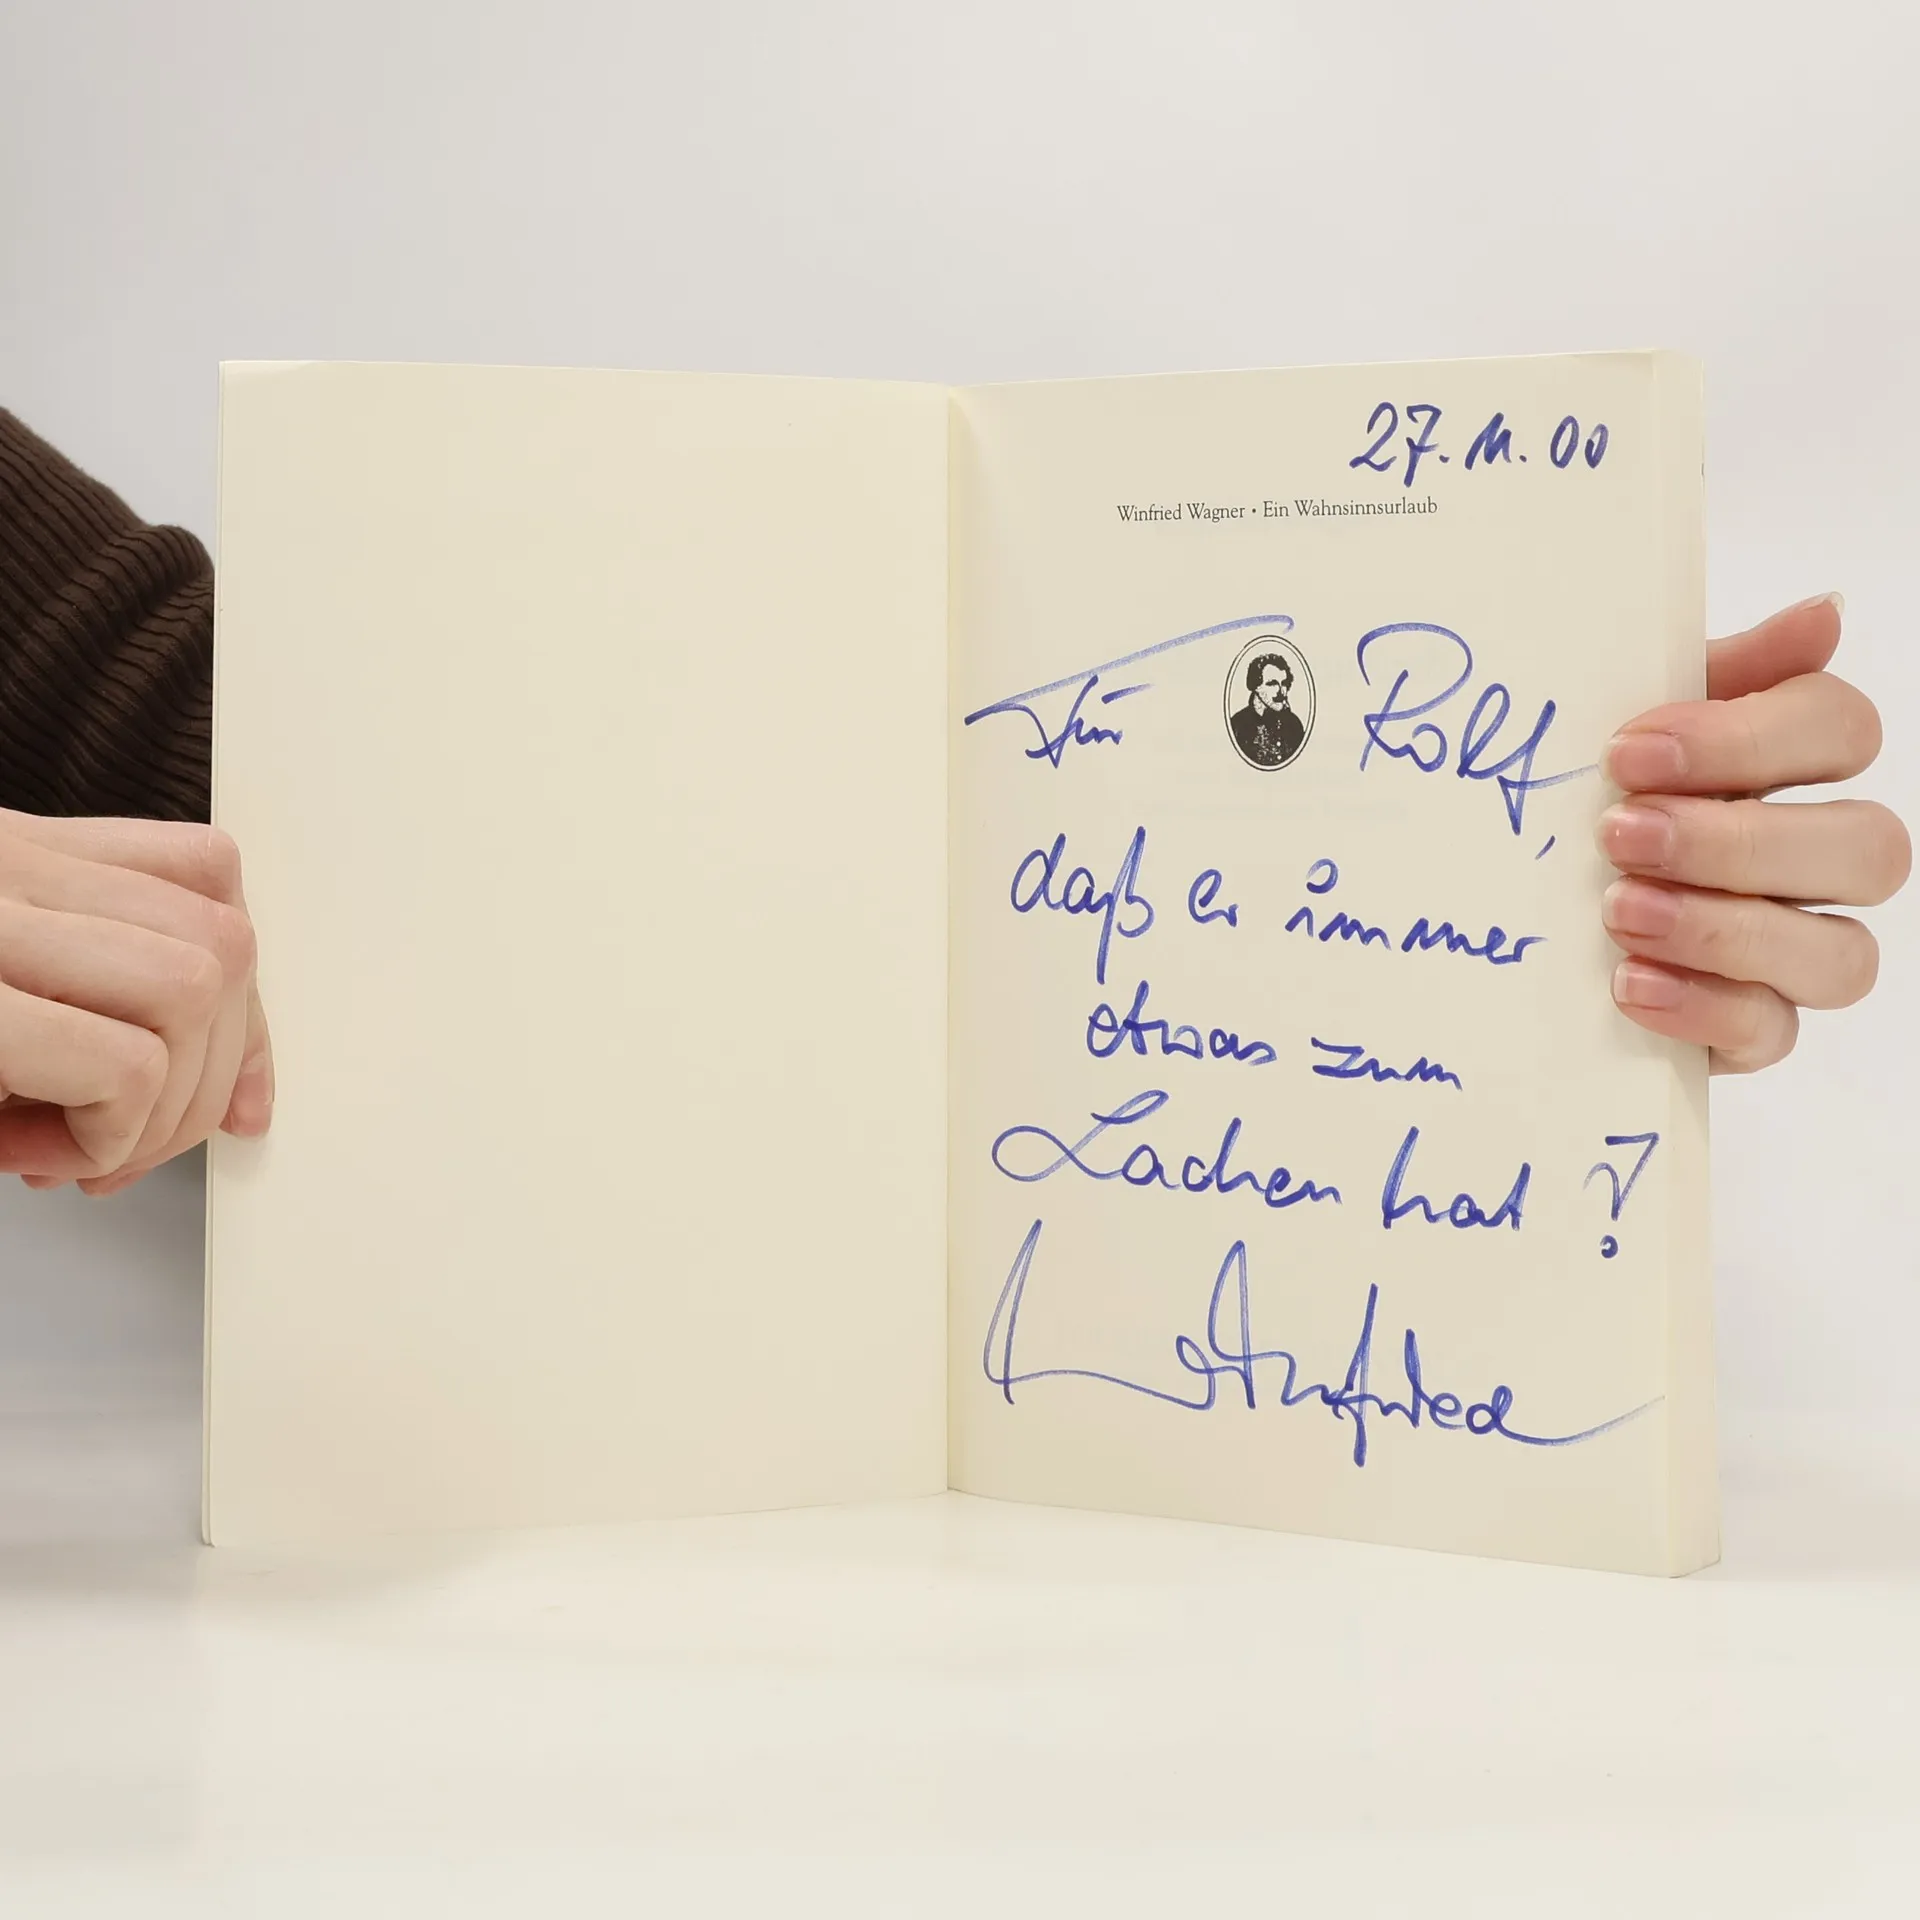 27. 11. 00
Winfried Wagner • Ein Wahnsinnsurlaub
Für Rolf,
daß er immer
etwas zum
Lachen hat!
Winfried